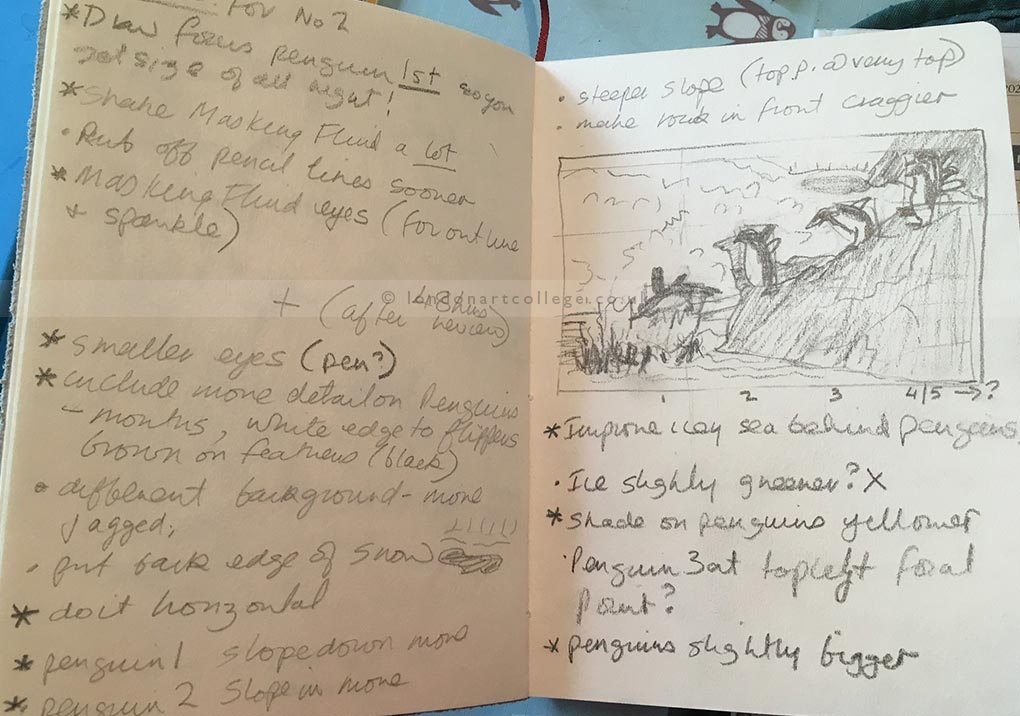 For No 2
*Draw focus penguin 1st so you
get size of all right!
*Shake Masking Fluid a lot
• Rub off pencil lines sooner
* Masking Fluid eyes (for outline
+ sparkle)
+ (after 48hrs
review)
*smaller eyes (pen?)
*include more detail on Penguins
– mouths, white edge to flippers
brown on feathers (black)
• different background - more
jagged,
• put back edge of snow
* do it horizontal
* penguin 1 slope down more
* penguin 2 slope in more
• steeper slope (top p. @ very top)
• make rock in front craggier
1 2 3 4/5 → ?
*Improve icy sea behind penguins
• Ice slighly greener? X
*shade on penguins yellower
• Penguin 3 at top left focal
point?
*penguins slightly bigger
© londonartcollege.co.uk